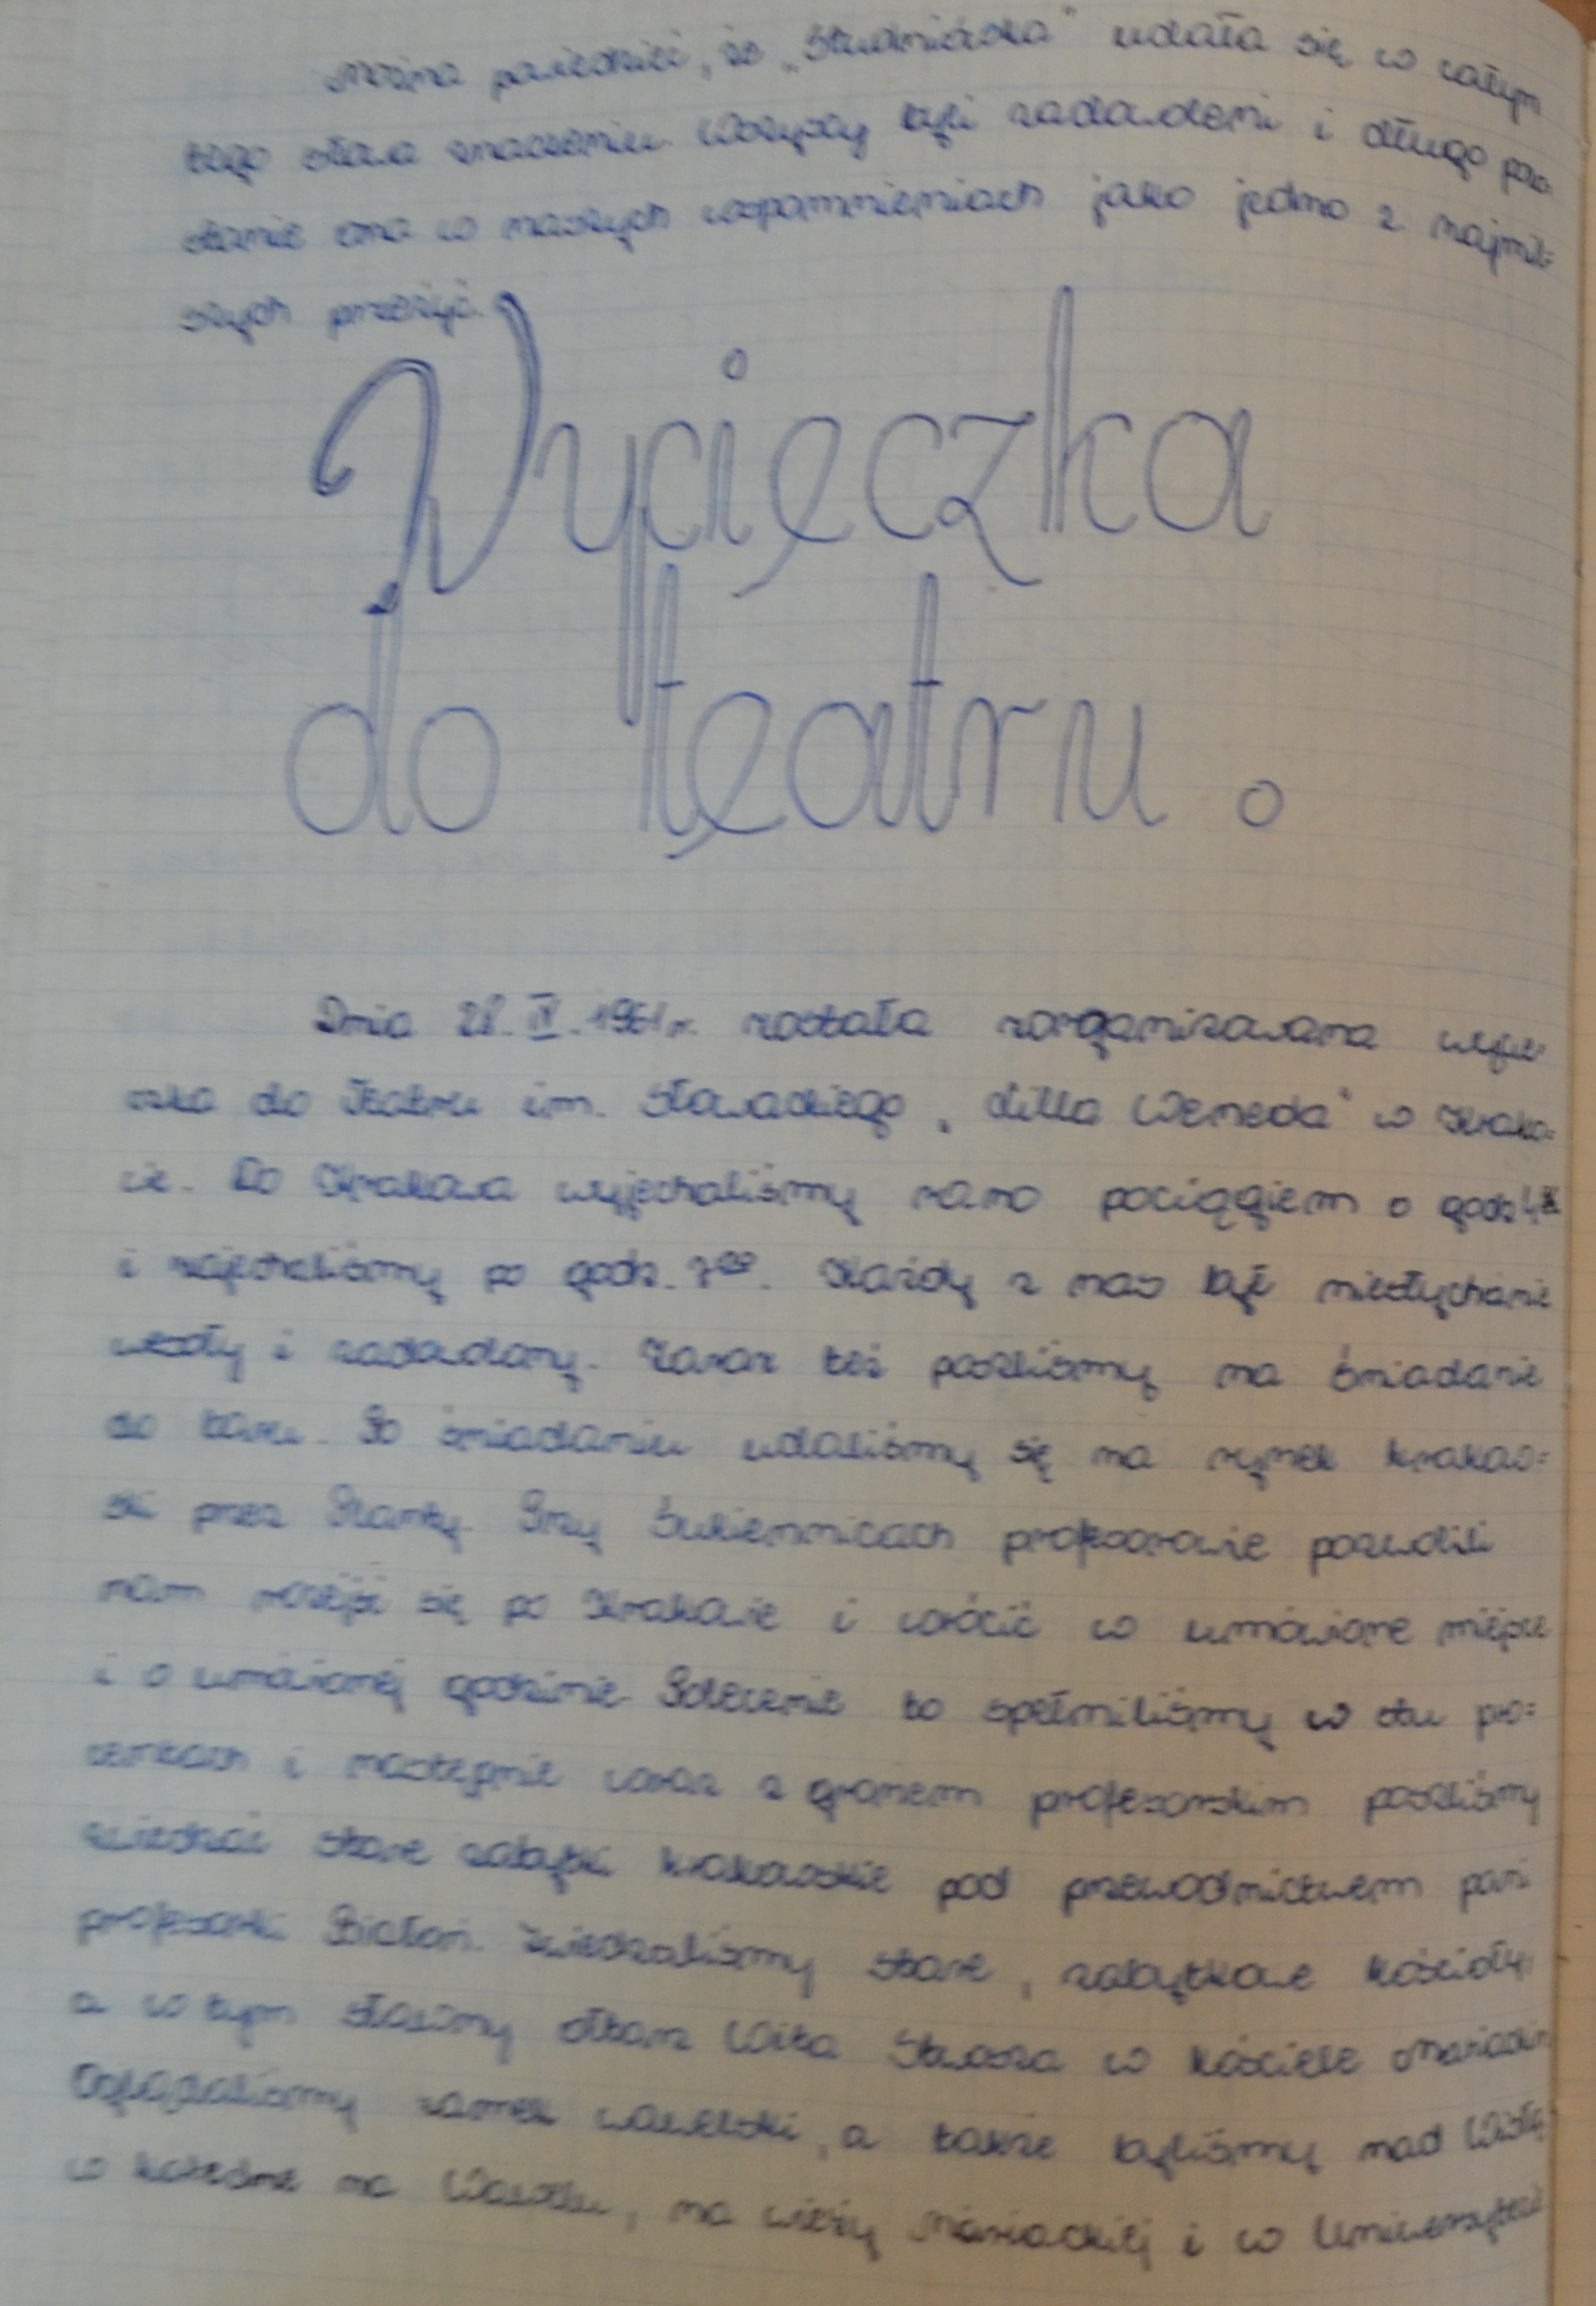 Można powiedzieć, że „Studniówka" udała się w całym
tego słowa znaczeniu. Wszyscy byli zadowoleni i długo pozo-
stanie ona w naszych wspomnieniach jako jedno z najmil=
szych przeżyć.
Wycieczka
do teatru.
Dnia 28. IV. 1961r. została zorganizowana wycie-
czka do Teatru im. Słowackiego „Lilla Weneda" w Krako=
wie. Do Krakowa wyjechaliśmy rano pociągiem o godz
i zajechaliśmy po godz. 7⁰⁰. Każdy z nas był niesłychanie
wesoły i zadowolony. Zaraz też poszliśmy na śniadanie
do baru. Po śniadaniu udaliśmy się na rynek krakow=
ski przez Planty. Przy Sukiennicach profesorowie pozwolili
nam rozejść się po Krakowie i wrócić w umówione miejsce
i o umówionej godzinie. Polecenie to spełniliśmy w stu pro=
centach i następnie wraz z gronem profesorskim poszliśmy
zwiedzać stare zabytki krakowskie pod przewodnictwem pani
profesorki Białoń. Zwiedzaliśmy stare, zabytkowe kościoły,
a w tym sławny ołtarz Wita Stwosza w kościele Mariackim
Oglądaliśmy zamek wawelski, a także byliśmy nad Wisłą
w katedrze na Wawelu, na wieży Mariackiej i w Uniwersytecie